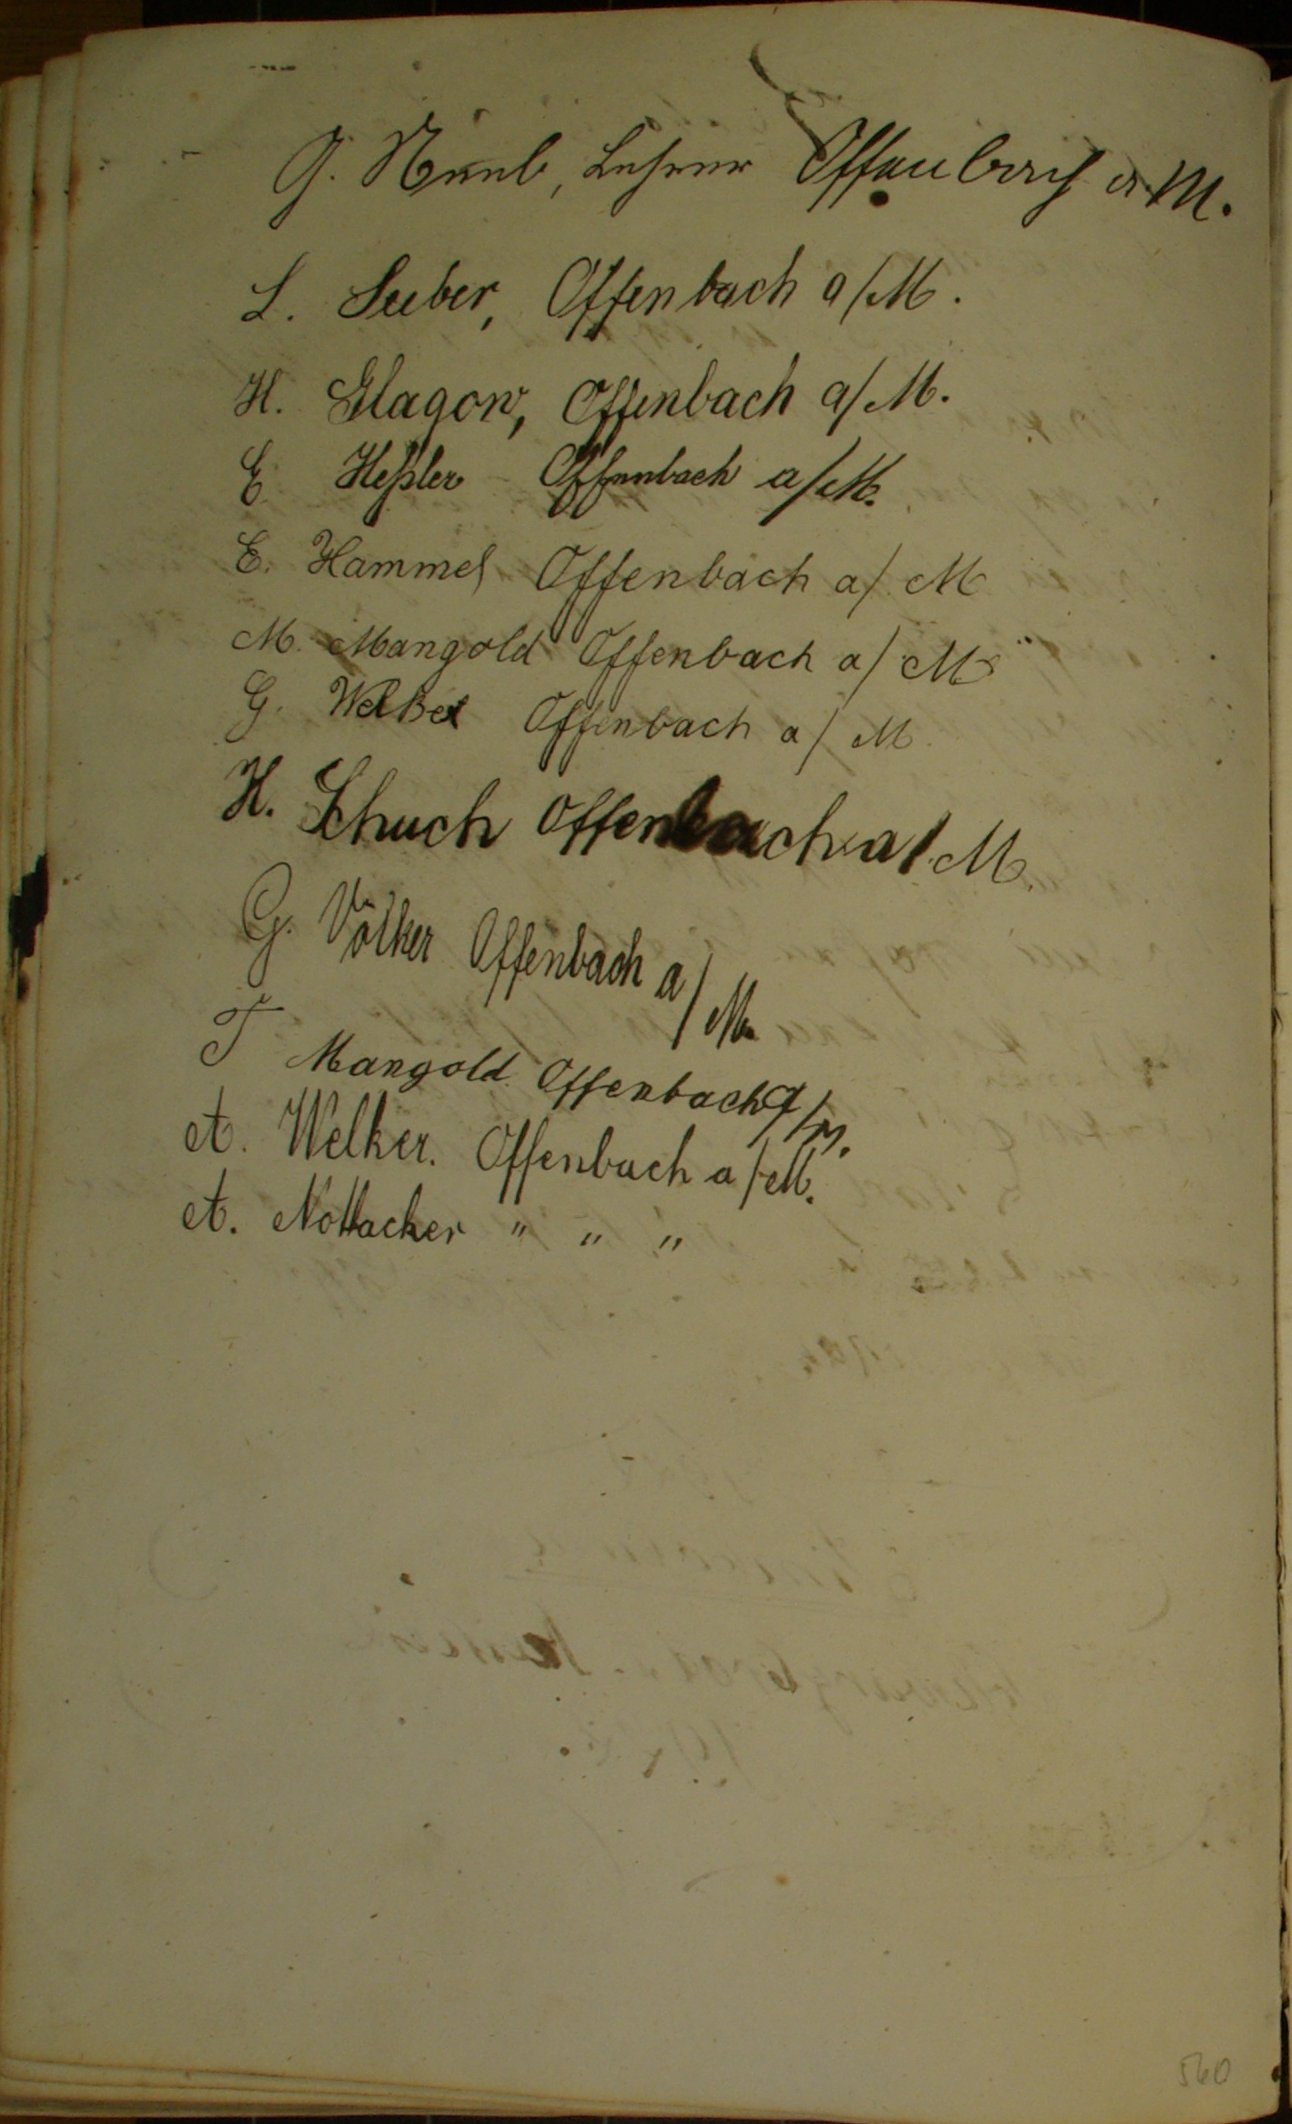 G. Neeb, Lehrer Offenbach a M.
L. Seeber, Offenbach a/M.
H. Glagow, Offenbach a/M.
E Heßler Offenbach a/M.
E. Hammel Offenbach a/M
M. Mangold Offenbach a/M
G. Offenbach a/M.
H. Schuch Offenbach a/M.
G. Völker Offenbach a/M.
T Mangold Offenbach a/M.
A. Welker. Offenbach a/M.
A. Nottacker " " "
560